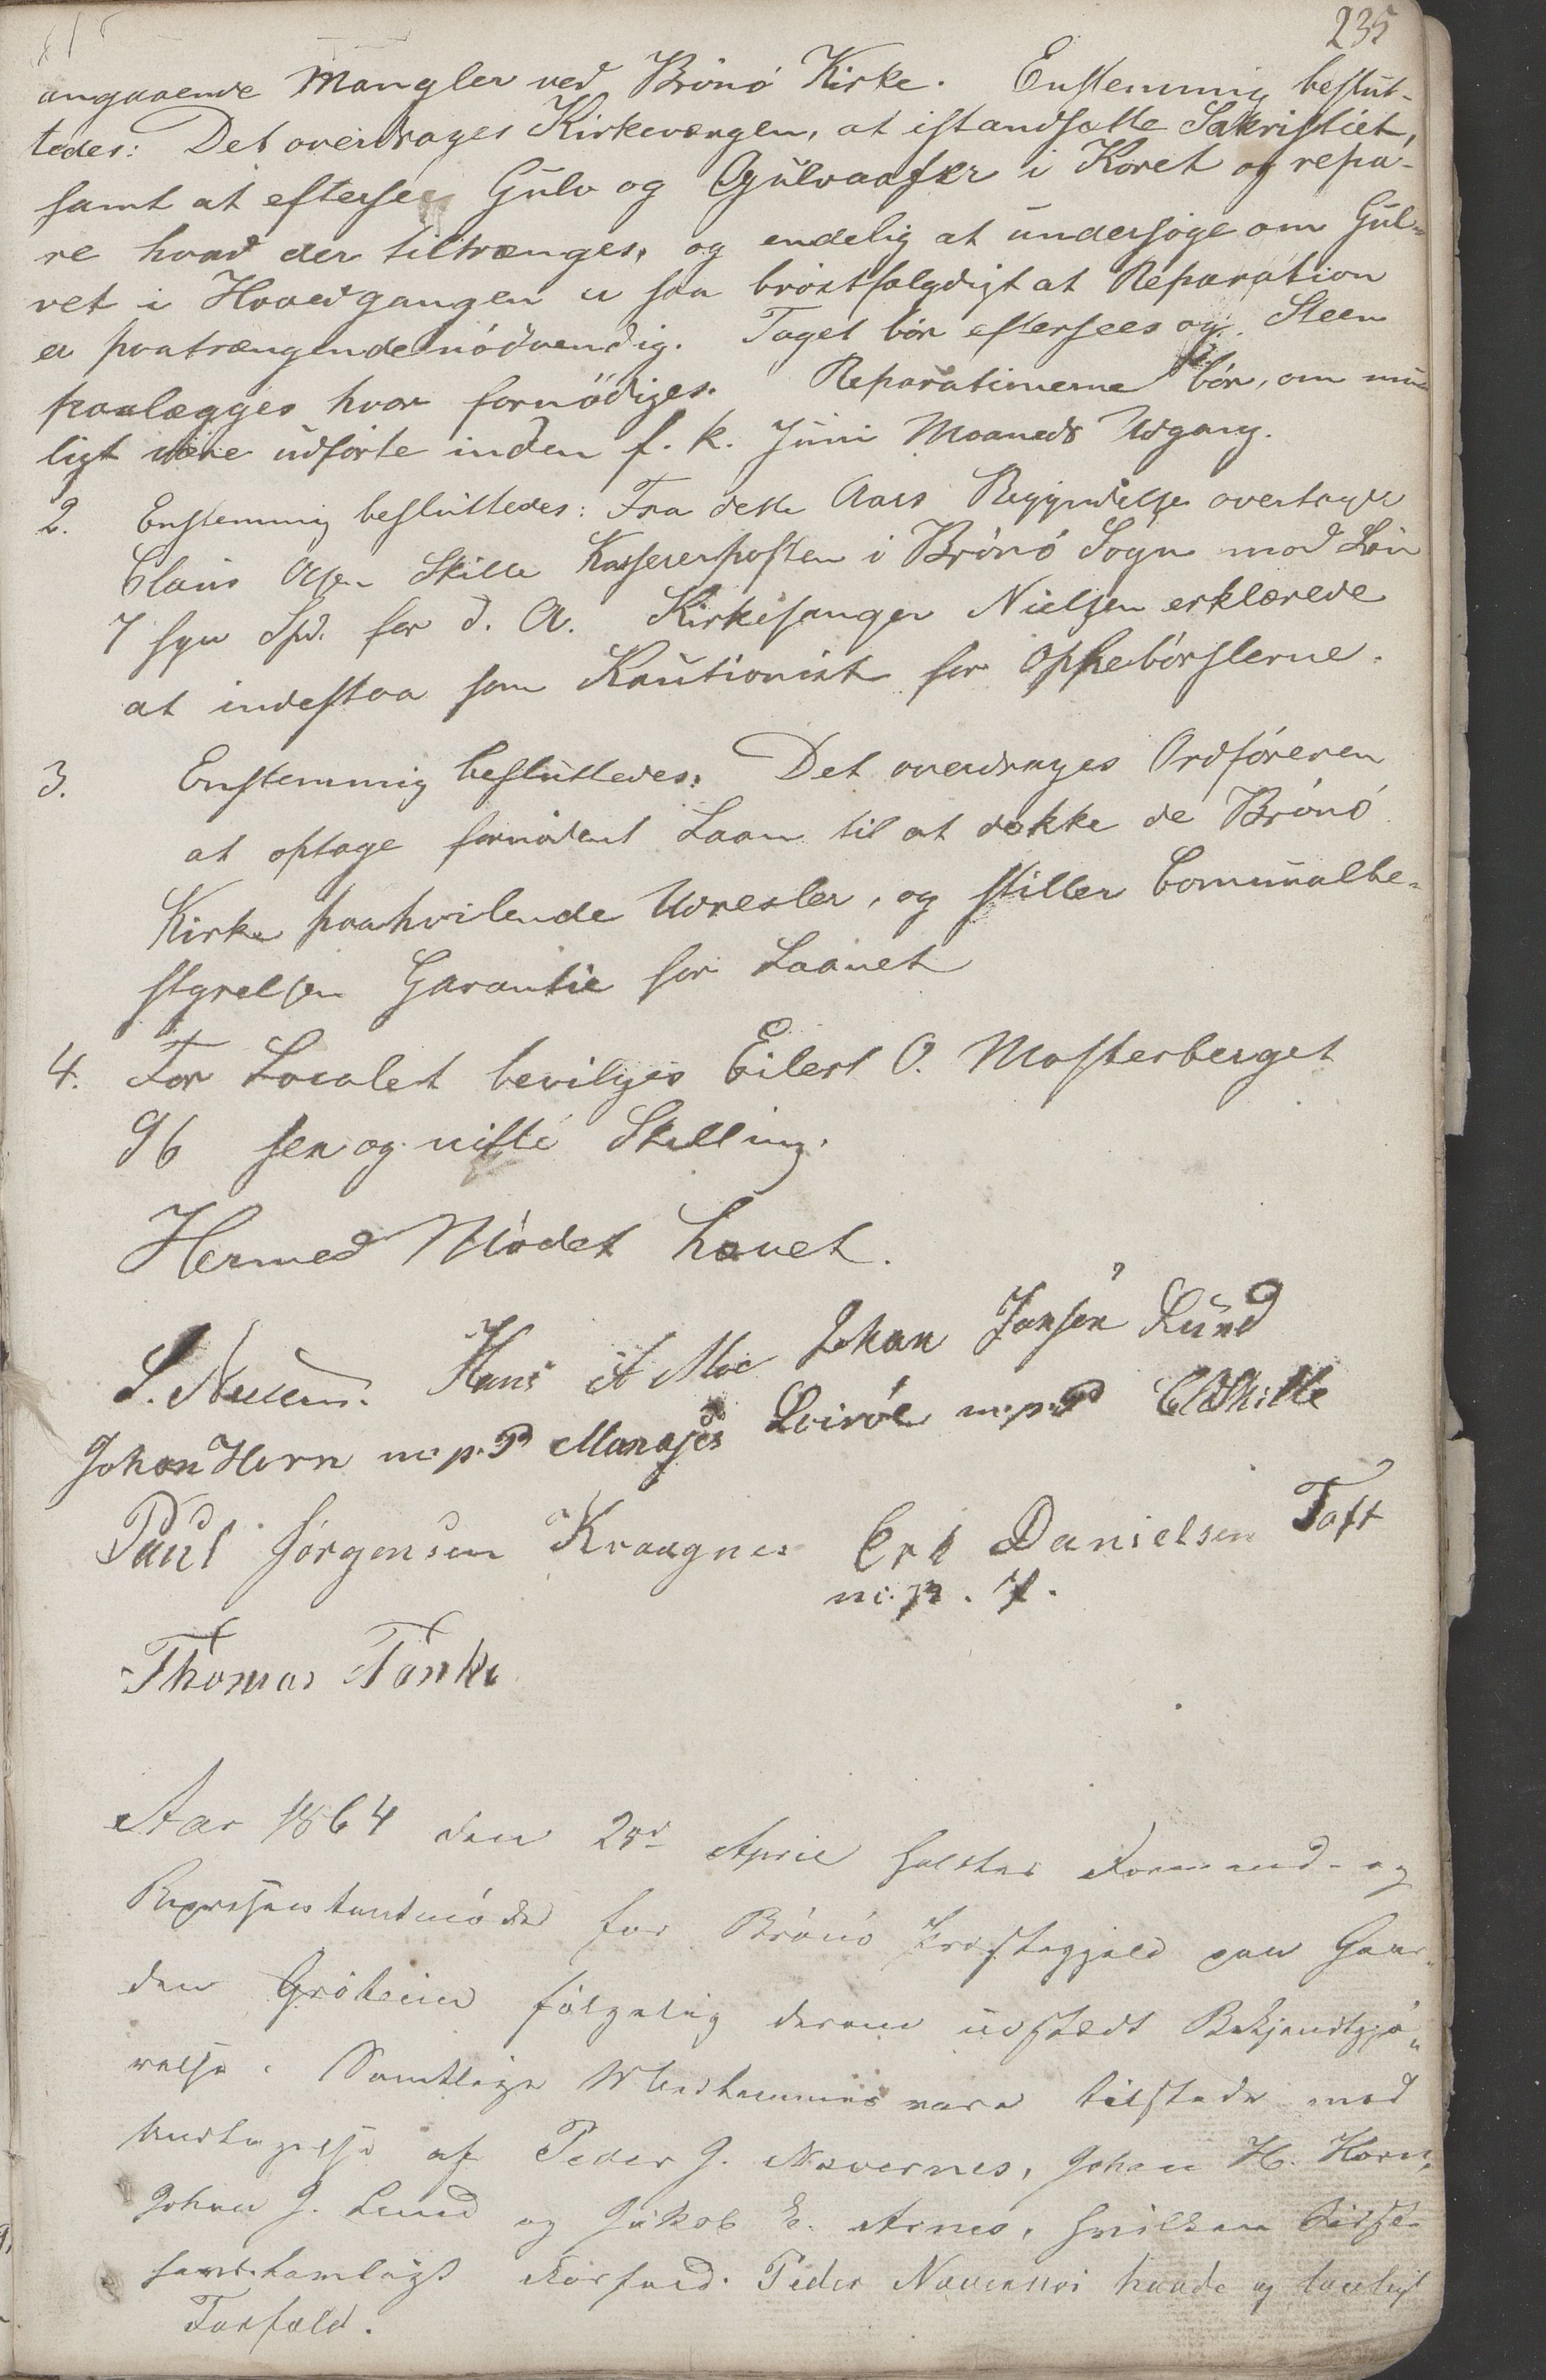 235
angaaende Mangler ved Brönö Kirke. Enstemmig beslut-
tedes: Det overdrages Kirkeværgen, at istandsætte Sakristiet,
samt at efterse Gulv og Gulvaaser i Koret og repa-
re hvad der tiltrænges, og endelig at undersöge om Gul-
vet i Hovedgangen er saa bröstfældigt at Reparation
er paatrængende nödvendig. Taget bör eftersees og Steen
paalægges hvor fornödiges. Reparationerne bör, om mu-
ligt være udförte inden f. k. Juni Maaneds Udgang.
2. Enstemmig besluttedes: Fra dette Aars Begyndelse overtager
Claus Olsen Skille Kassererposten i Brönö Sogn mod Lön
7 syv Spd. for d. A. Kirkesanger Nielsen erklærede
at indestaa som Kautionist for Oppebörslerne.
3. Enstemmig besluttedes: Det overdrages Ordföreren
at optage fornödent Laan til at dække de Brönö
Kirke paahvilende Udresler, og stiller Communalbe-
styrelsen Garantie for Laanet
4. For Localet bevilges Eilert O. Mosterberget
96 sex og nitti Skilling.
Hermed Mödet hævet.
S. Nielsen. Hans A Moe Johan Jonsen Lund
Johan Horn m. p. P Manases m. p. P Skille
Paul Jörgensen Kraagnes Erk Danielsen Toft
m. p. P.
Thomas Tanke
Aar 1864 den April holdtes Formænd- og
Repræsentantmöde for Brönö Præstegjæld paa Gaar-
den Gröheim fölgelig derom udstædt Bekjendtgjö-
relse. Samtlige Medlemmer vare tilstede med
Undtagelse af Peder J. Navernes, Johan H. Horn,
Johan J. Lund og Jakob E. Arnes, hvilken
havde lovligt Forfald. Peder havde og lovligt
Forfald.